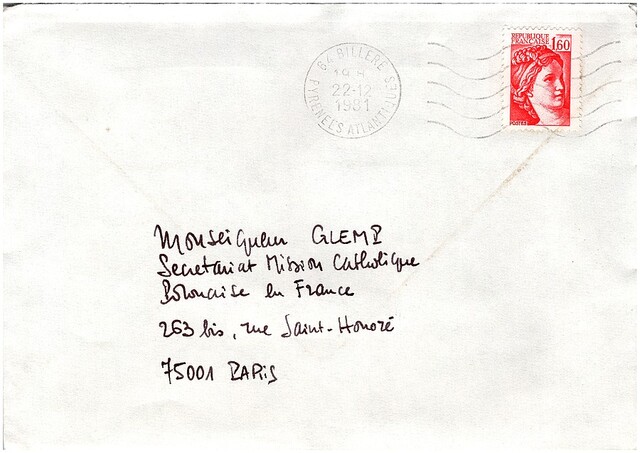 64 BILLERE
19 H
22-12
1981
PYRENEES ATLANTIQUES
REPUBLIQUE
FRANCAISE
1,60
POSTES
Monseigneur GLEMB
Secretariat Mission Catholique
Polonaise en France
263 bis, rue Saint-Honoré
75001 PARIS